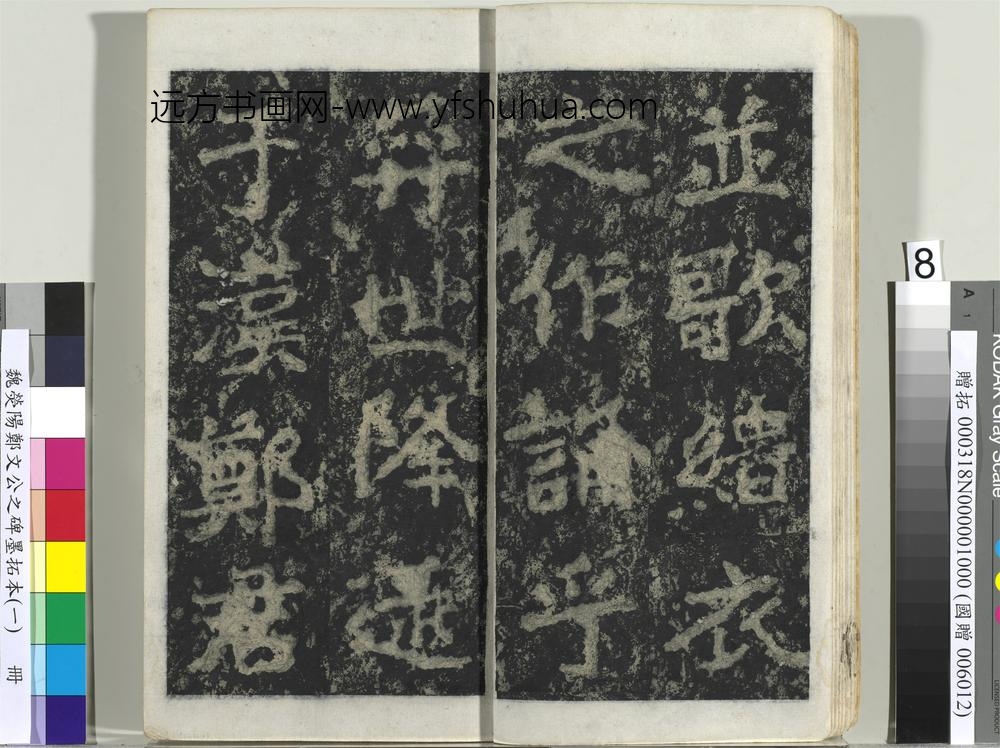 远方书画网-www.yfshuhua.com
並歌緇衣
之作誦乎
弈世降逮
于漢鄭君
8
A
1
KODAK Gray Scale
贈拓 000318N000001000 (國贈 006012)
魏滎陽鄭文公之碑墨拓本(一) 冊